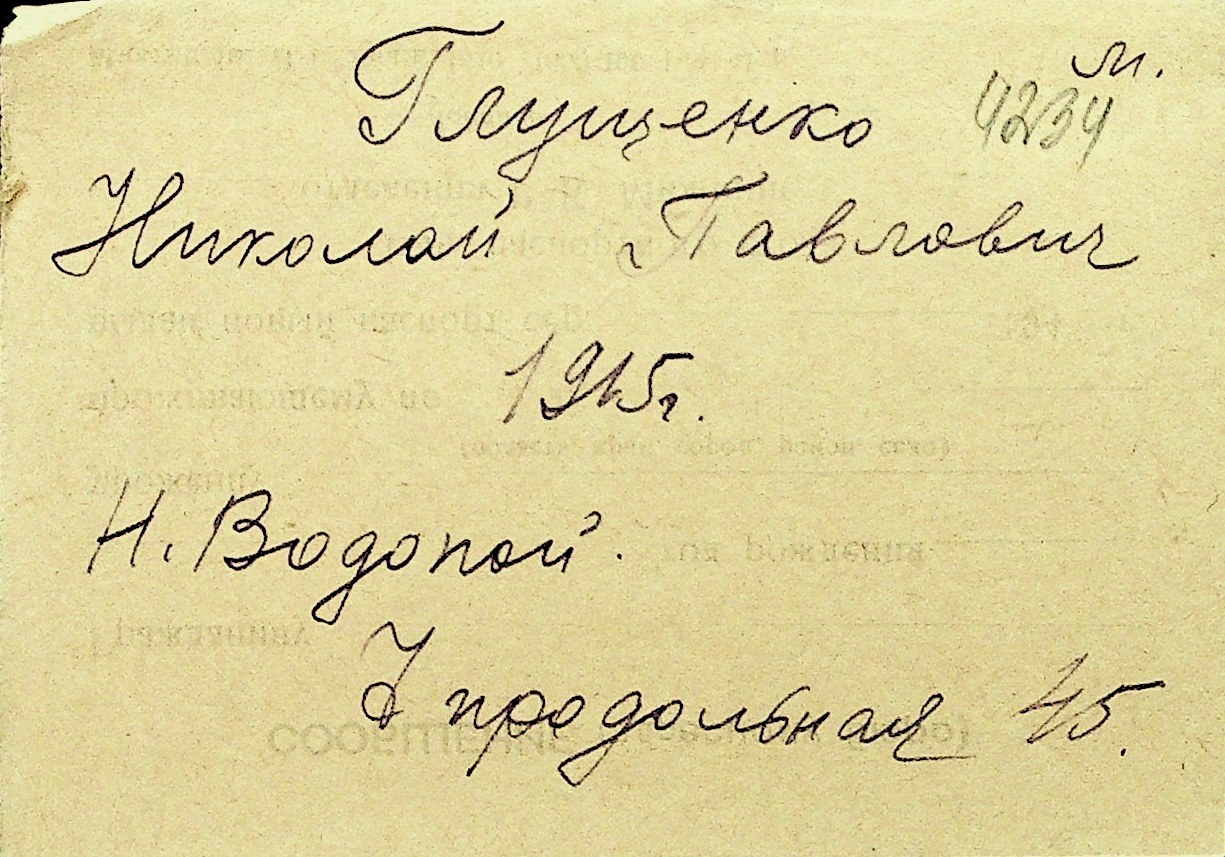 м.
Глущенко 4234
Николай Павлович
1915г.
Н. Водопой.
7 продольная 45.